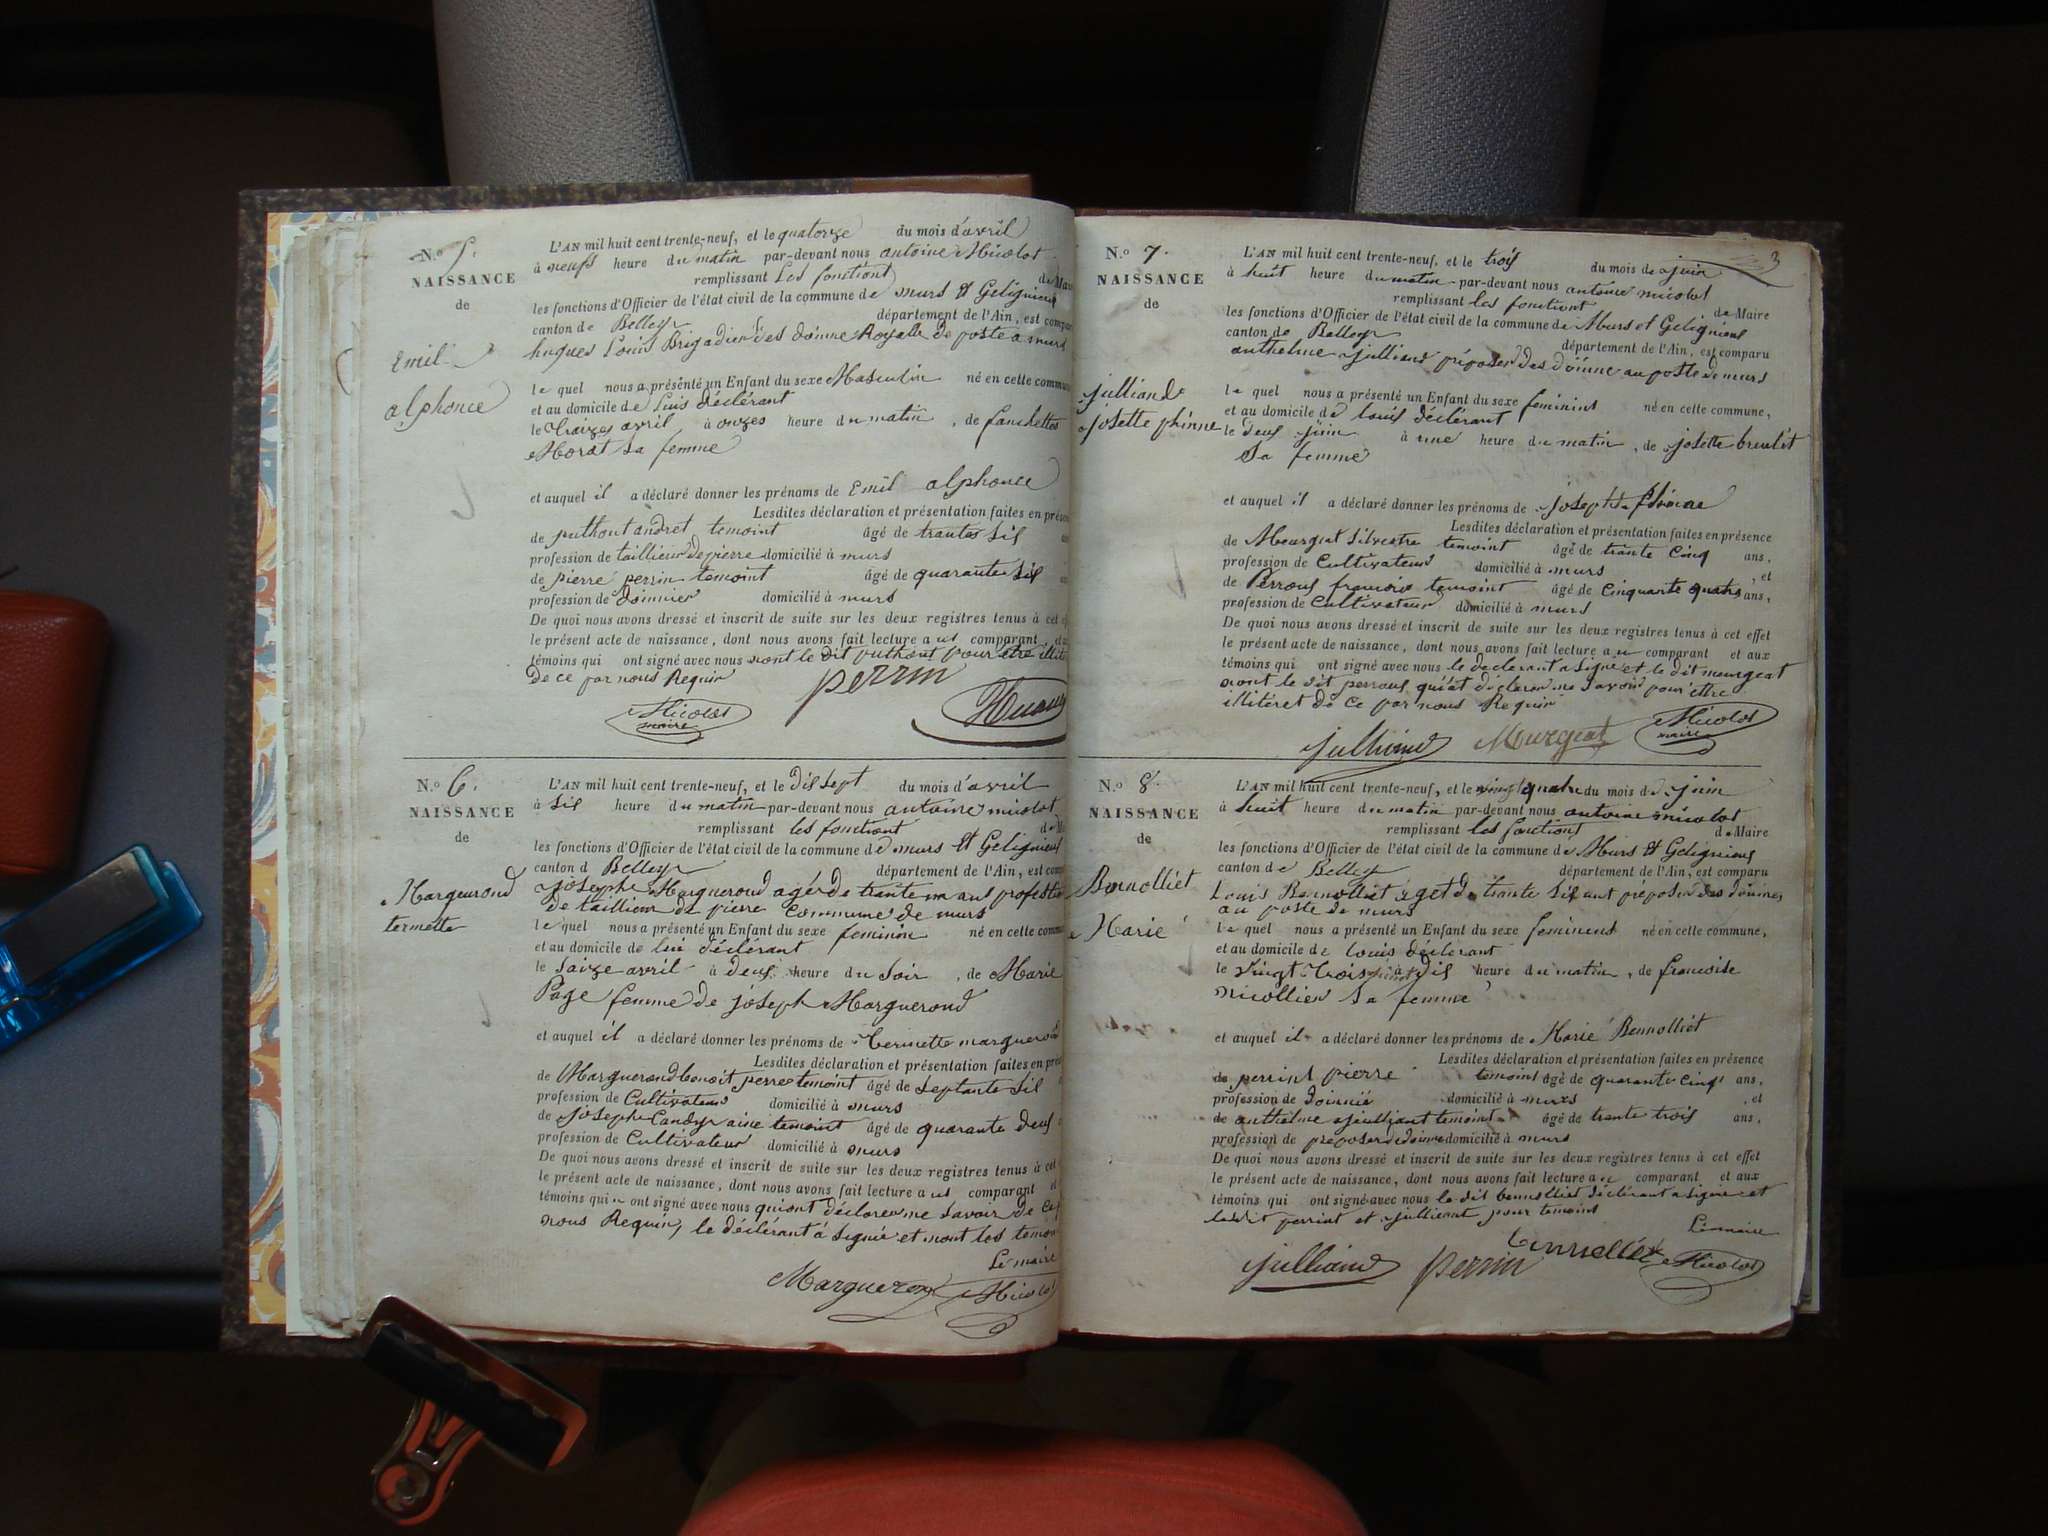 N.o 5.
NAISSANCE
de
Emil
alphonce
L'AN mil huit cent trente-neuf, et le quatorze du mois d'avril
à neufs heure du matin par-devant nous antoine Nicolot
remplissant Les fonctiont de Mai
les fonctions d'Officier de l'état civil de la commune de murs et Gelignieux
canton de Belley département de l'Ain, est compa
hugues Louis Brigadier des douine Royalle de poste a murs
le quel nous a présenté un Enfant du sexe Masculin né en cette commu
et au domicile de Luis déclérant
le traizes avril à onzes heure du matin, de fanchettes
Morat sa femme
et auquel il a déclaré donner les prénoms de Emil alphonce
Lesdites déclaration et présentation faites en prése
de puthout andret temoint âgé de trantes sis
profession de taillieur de pierre domicilié à murs
de pierre perrin temoint âgé de quarante sis
profession de doinnier domicilié à murs
De quoi nous avons dressé et inscrit de suite sur les deux registres tenus à cet ef
le présent acte de naissance, dont nous avons fait lecture aux comparant et
témoins qui ont signé avec nous nont le dit puthout pour etre illit
de ce par nous Requir
perrin
Nicolot
maire
N.o 6.
NAISSANCE
de
Margeurond
termette
L'AN mil huit cent trente-neuf, et le dis sept du mois d'avril
à sis heure du matin par-devant nous antoine nicolot
remplissant les fonctiont de M
les fonctions d'Officier de l'état civil de la commune de murs et Gelignieux
canton d Belley département de l'Ain, est com
joseph Marguerond agér de trante un ans professio
de taillieur de pierre commune de murs
le quel nous a présenté un Enfant du sexe feminin né en cette commu
et au domicile de lui déclérant
le saize avril à deus heure du soir, de Marie
Page femme de joseph Marguerond
et auquel il a déclaré donner les prénoms de termette marguerond
Lesdites déclaration et présentation faites en pré
de Marguerond benoit perre temoint âgé de septante sis
profession de Cultivateur domicilié à murs
de joseph Candy aine temoint âgé de quarante deus
profession de Cultivateur domicilié à murs
De quoi nous avons dressé et inscrit de suite sur les deux registres tenus à cet
le présent acte de naissance, dont nous avons fait lecture aux comparant et
témoins qui n ont signé avec nous qui ont déclorer ne savoir de ce p
nous Requir, le déclérant à signié et nont les temoin
Le maire
Margueron
Nicolot
3
N.o 7.
NAISSANCE
de
julliand
josette phinne
L'AN mil huit cent trente-neuf, et le trois du mois de juin
à huit heure du matin par-devant nous antoine nicolot
remplissant les fonctiont de Maire
les fonctions d'Officier de l'état civil de la commune de Murs et Gelignieus
canton de Belley département de l'Ain, est comparu
anthelme julliand préposer des doinne au poste de murs
le quel nous a présenté un Enfant du sexe feminins né en cette commune,
et au domicile de louis déclérant
le deus juin à une heure du matin, de josette breulet
sa femme
et auquel il a déclaré donner les prénoms de josephte phinne
Lesdites déclaration et présentation faites en présence
de Meurgeat silvestre temoint âgé de trante cinq ans,
profession de Cultivateur domicilié à murs, et
de Perrous francois temoint âgé de cinquante quatre ans,
profession de Cultivateur domicilié à murs
De quoi nous avons dressé et inscrit de suite sur les deux registres tenus à cet effet
le présent acte de naissance, dont nous avons fait lecture au comparant et aux
témoins qui ont signé avec nous le declerant a signé et le dit meurgeat
nont le dit perrous qui at déclerer ne savoir pour etre
illiteret de ce par nous Requir
julliand Meurgeat Nicolot
maire
N.o 8.
NAISSANCE
de
Bennolliet
Marié
L'AN mil huit cent trente-neuf, et le vingt quatre du mois de juin
à huit heure du matin par-devant nous antoine nicolot
remplissant les fonctiont de Maire
les fonctions d'Officier de l'état civil de la commune de Murs et Gelignieus
canton de Belley département de l'Ain, est comparu
Louis Bennolliet aget de trante sis ant préposer des doinnes
au poste de murs
le quel nous a présenté un Enfant du sexe feminens né en cette commune,
et au domicile de louis déclérant
le vingt trois à dis heure du matin, de francoise
nicollier sa femme
et auquel il a déclaré donner les prénoms de Marié Bennolliet
Lesdites déclaration et présentation faites en présence
de perrint pierre temoint âgé de quarante cinq ans,
profession de doinnié domicilié à murs, et
de anthelme jeulliant temoint âgé de trante trois ans,
profession de préposer de doinne domicilié à murs
De quoi nous avons dressé et inscrit de suite sur les deux registres tenus à cet effet
le présent acte de naissance, dont nous avons fait lecture au comparant et aux
témoins qui ont signé avec nous le dit bennolliet déclérant a signer et
ledit perrint et jullient pour temoins
Le maire
julliand perrin bennolliet Nicolot